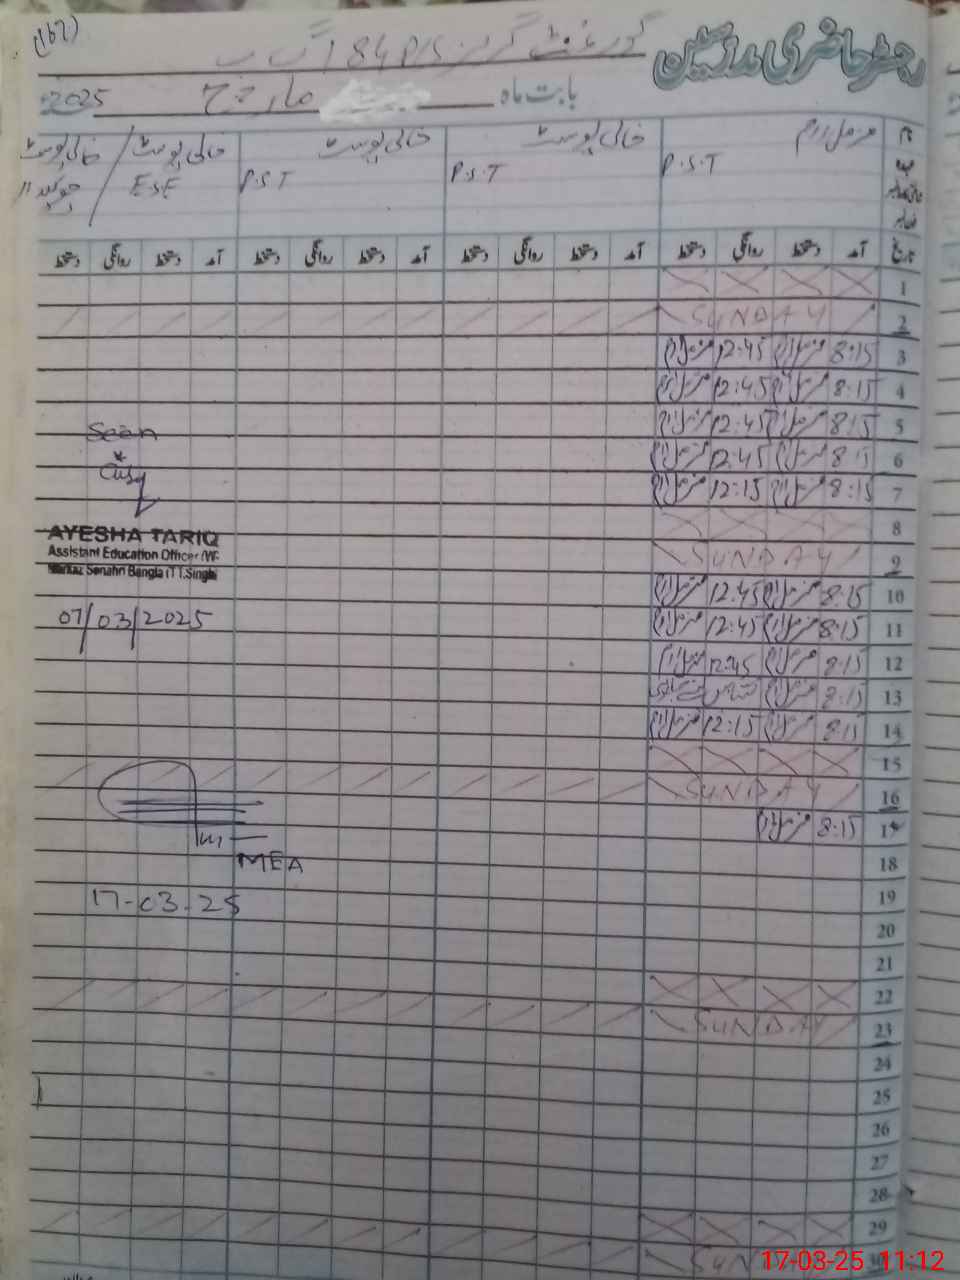 (167)
رجسٹر حاضری مدرسین
گورنمنٹ گرلز P/S 184 گ ب
بابت ماہ مارچ 2025
نام مزمل ارم خالی پوسٹ خالی پوسٹ خالی پوسٹ / خالی پوسٹ
عہدہ P.S.T P.S.T P.S.T ESE
تاریخ آمد دستخط روانگی دستخط آمد دستخط روانگی دستخط آمد دستخط روانگی دستخط آمد دستخط روانگی دستخط
1
2 SUNDAY
3 8:15 مزمل ارم 12:45 مزمل ارم
4 8:15 مزمل ارم 12:45 مزمل ارم
5 8:15 مزمل ارم 12:45 مزمل ارم
Seen
6 8:15 مزمل ارم 12:45 مزمل ارم
7 8:15 مزمل ارم 12:15 مزمل ارم
8
AYESHA TARIQ
Assistant Education Officer (W-
Markaz Senahri Bangla (T.T.Singh)
9 SUNDAY
10 8:15 مزمل ارم 12:45 مزمل ارم
07/03/2025
11 8:15 مزمل ارم 12:45 مزمل ارم
12 8:15 مزمل ارم 12:45 مزمل ارم
13 8:15 مزمل ارم
14 8:15 مزمل ارم 12:15 مزمل ارم
15
16 SUNDAY
17 8:15 مزمل ارم
MEA
18
17-03-25
19
20
21
22
23 SUNDAY
24
25
26
27
28
29
30 SUN
17-03-25 11:12